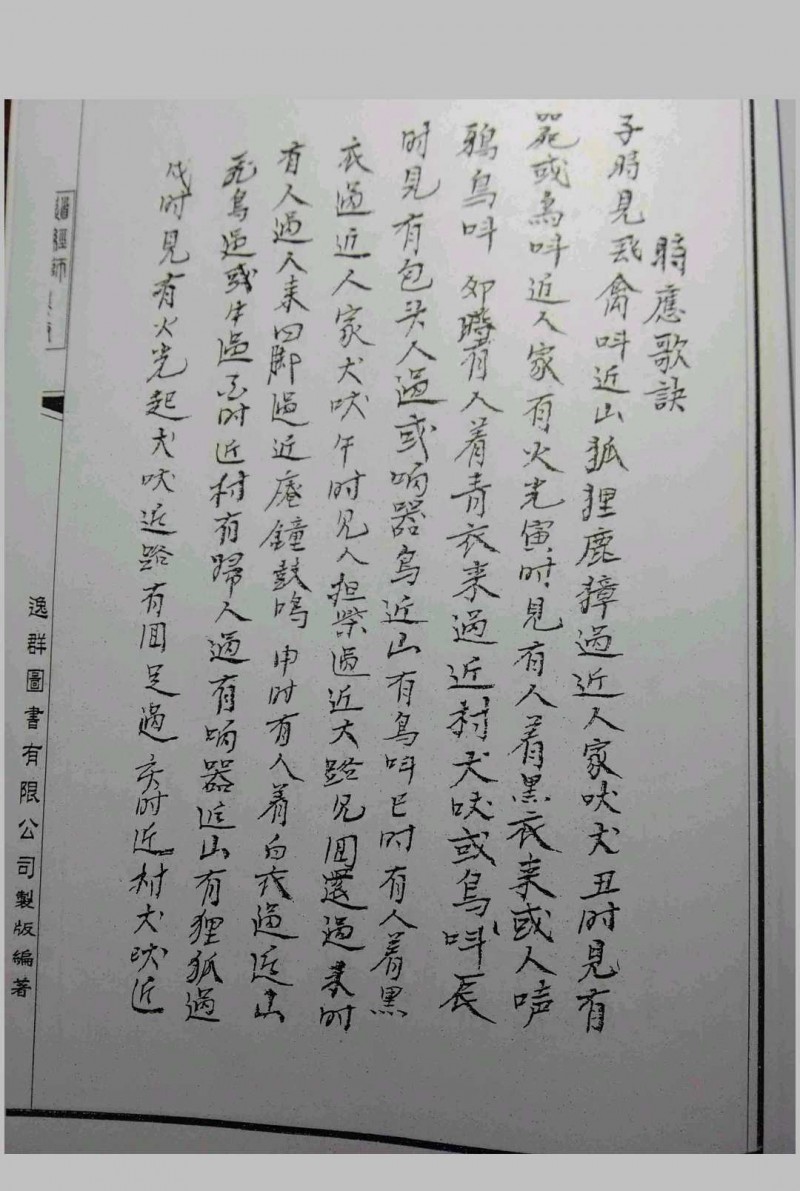 時應歌訣
子時見飛禽呌近山狐狸鹿獐過近人家吠犬丑时見有
或鳥呌近人家有火光寅时見有人着黑衣来或人声
鴉鳥呌卯時有人着青衣来過近村犬吠或鳥呌辰
时見有包头人過或响器鳥近山有鳥呌巳时有人着黑
衣過近人家犬吠午时見人担柴過近大路見過未时
有人過人来四脚過近庵鐘鼓鳴申时有人着白衣過近山
鳥過或牛過酉时近村有婦人過有响器近山有狸狐過
戌时見有火光起犬吠近路有足過亥时近村犬吠近
逸群圖書有限公司製版編著